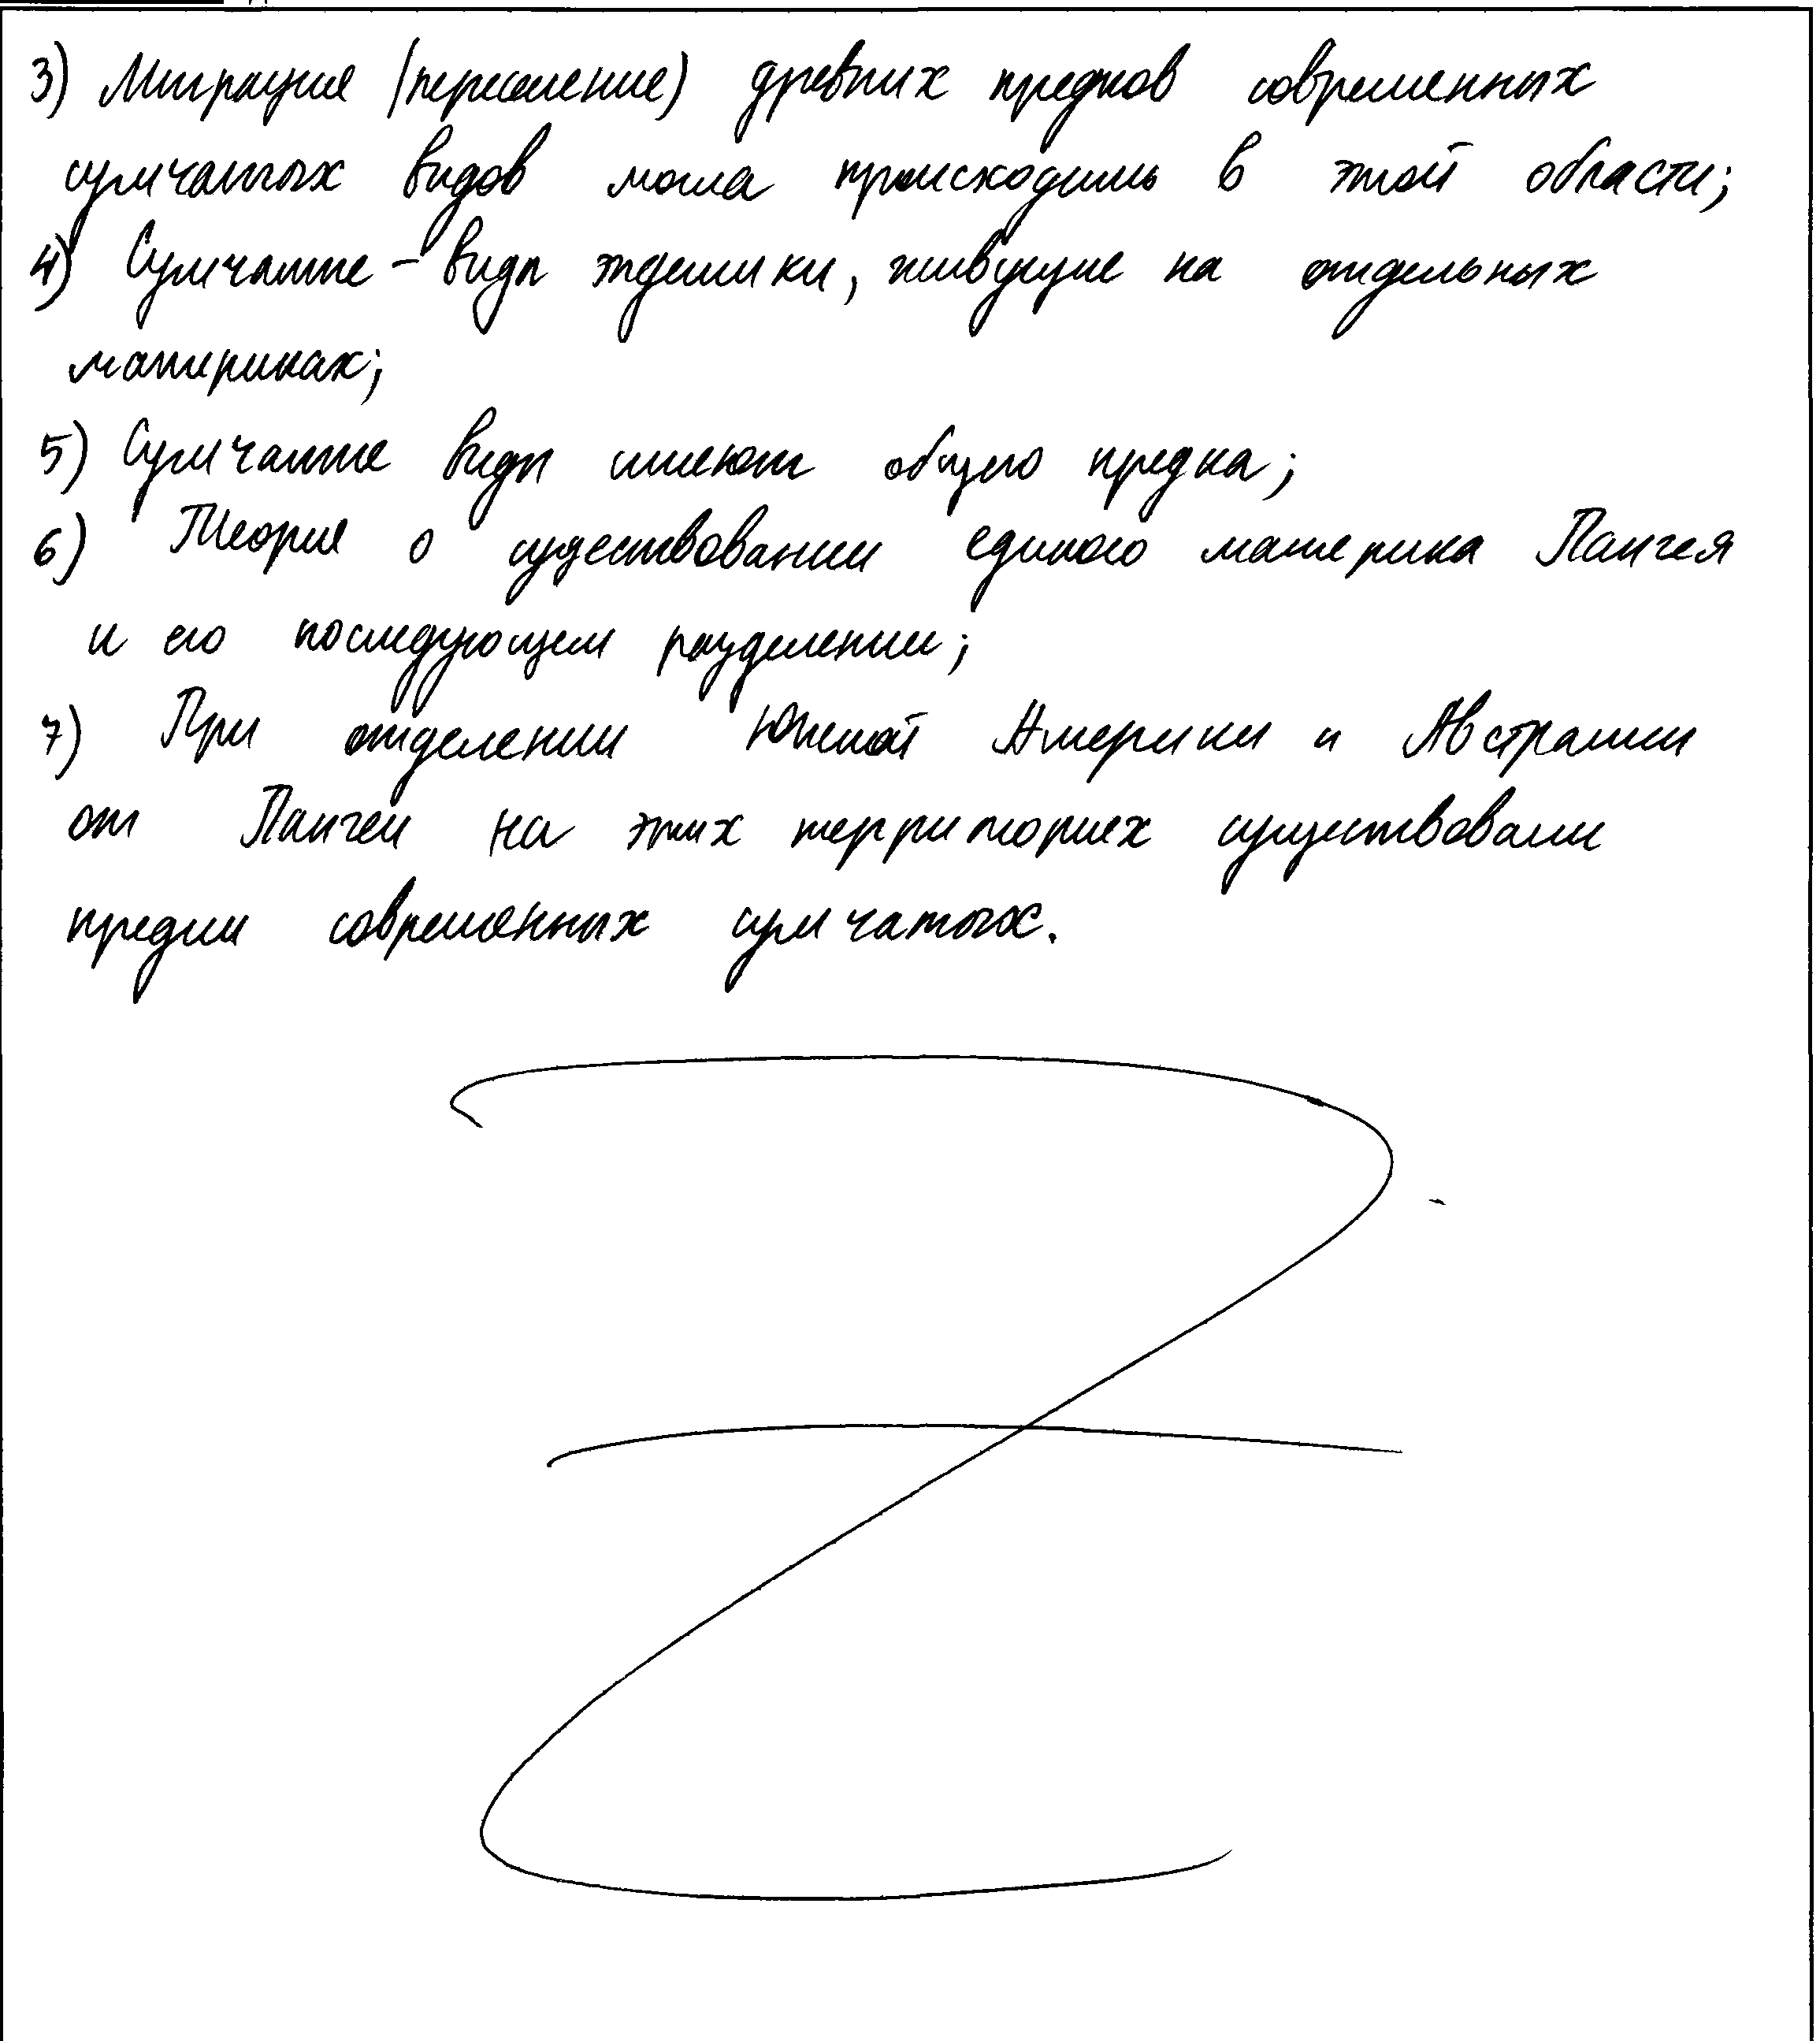 3) Миграция (переселение) древних предков современных
сумчатых видов могла происходить в этой области;
4) Сумчатые - виды эндемики, живущие на отдельных
материках;
5) Сумчатые виды имеют общего предка;
6) Теория о существовании единого материка Пангея
и его последующем разделении;
7) При отделении Южной Америки и Австралии
от Пангеи на этих территориях существовали
предки современных сумчатых.